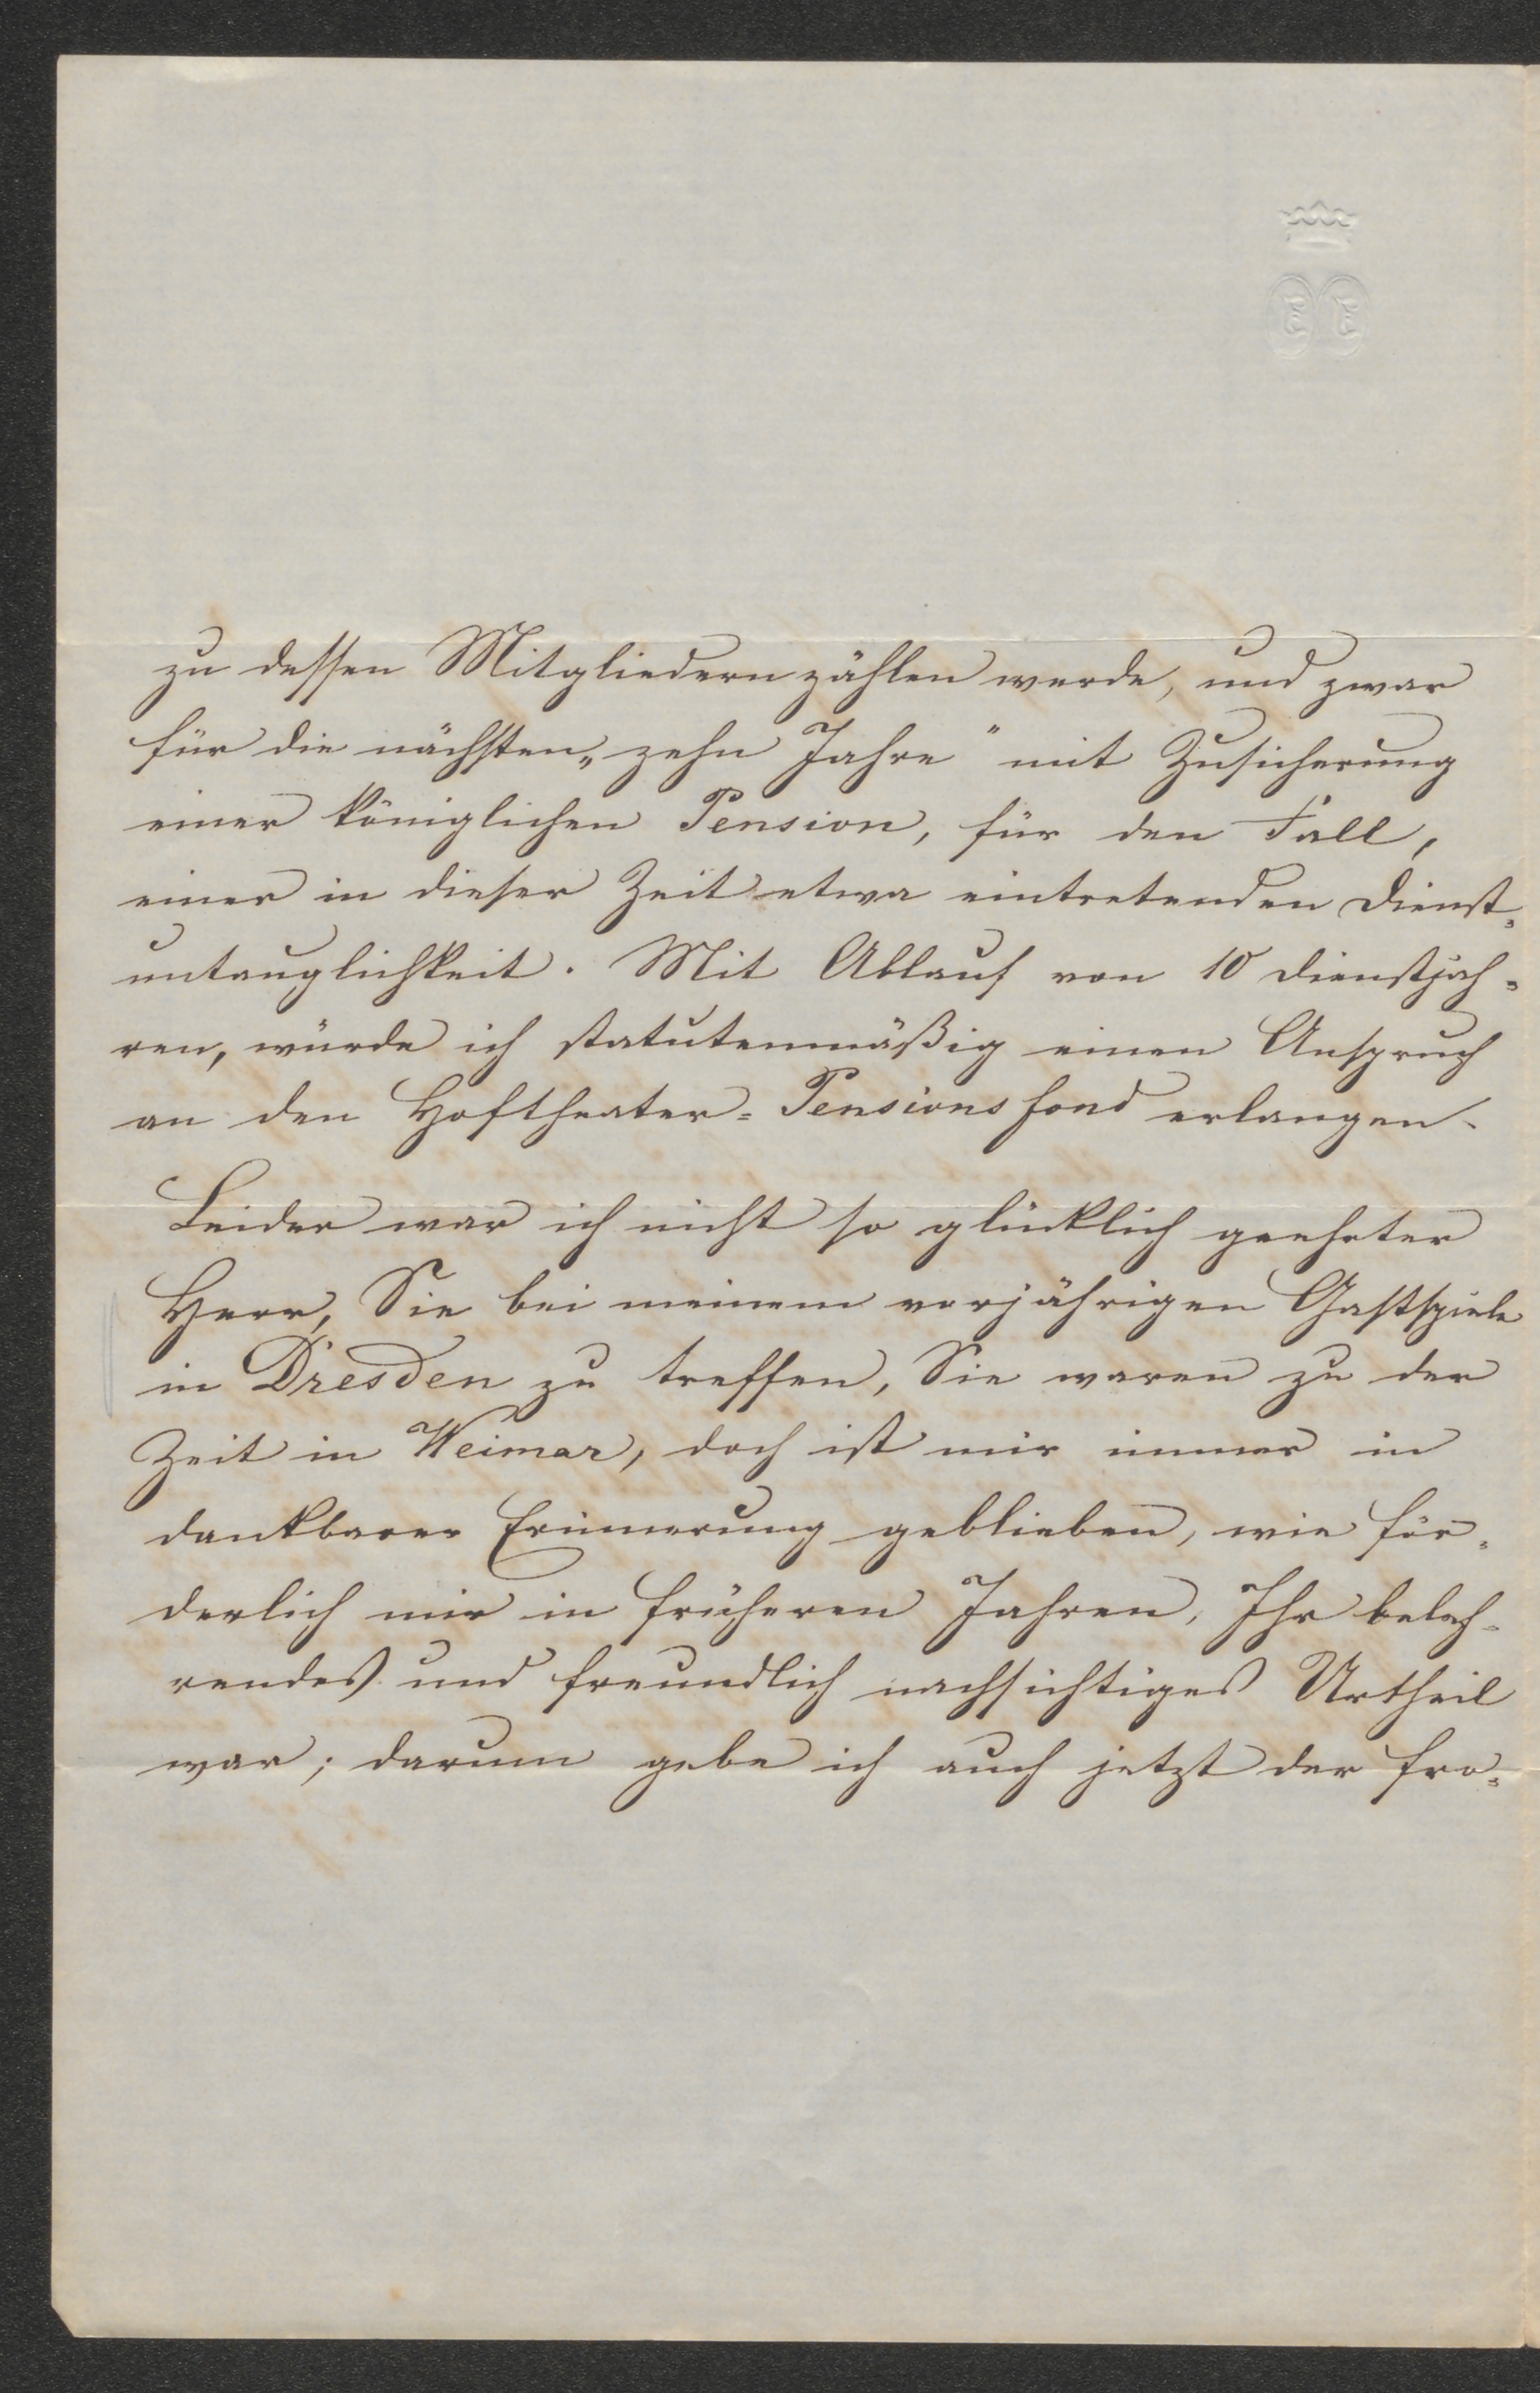 zu dessen Mitgliedern zählen werde, und zwar
für die nächsten „zehn Jahre" mit Zusicherung
einer königlichen Pension, für den Fall,
einer in dieser Zeit etwa eintretenden Dienst=
untauglichkeit. Mit Ablauf von 10 Dienstjah=
ren, würde ich statutenmäßig einen Anspruch
an den Hoftheater=Pensionsfond erlangen.
Leider war ich nicht so glücklich geehrter
Herr, Sie bei meinem vorjährigen Gastspiele
in Dresden zu treffen, Sie waren zu der
Zeit in Weimar, doch ist mir immer in
dankbarer Erinnerung geblieben, wie för=
derlich mir in früheren Jahren, Ihr beleh=
rendes und freundlich nachsichtiges Urtheil
war; darum gebe ich auch jetzt der fro=